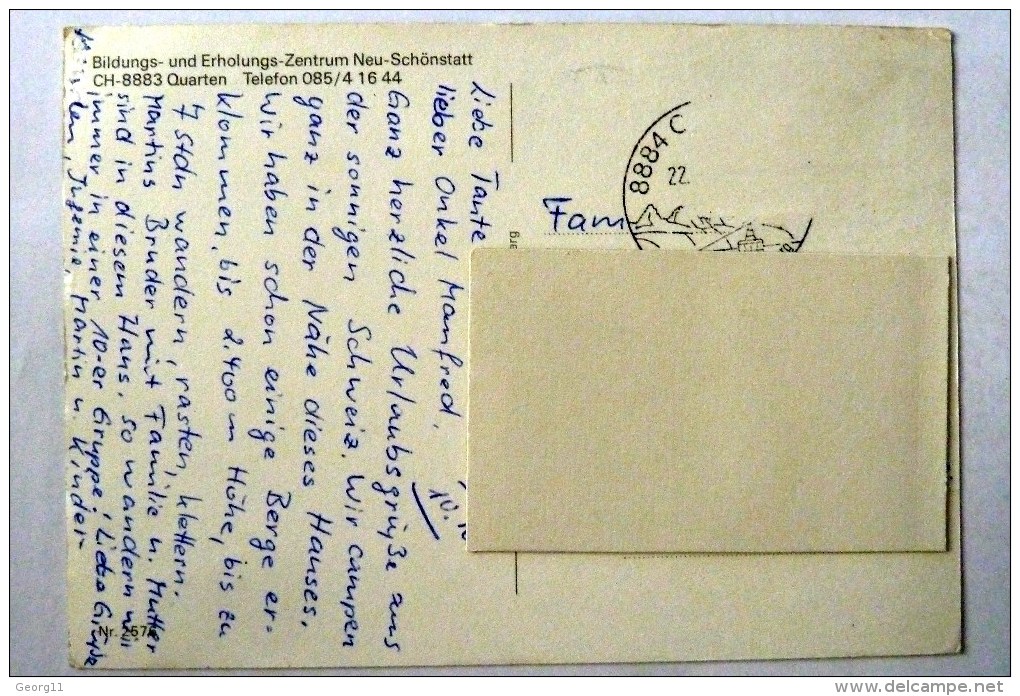 Bildungs- und Erholungs-Zentrum Neu-Schönstatt
CH-8883 Quarten Telefon 085/4 16 44
Liebe Tante
lieber Onkel Manfred,
Ganz herzliche Urlaubsgrüße aus
der sonnigen Schweiz. Wir campen
ganz in der Nähe dieses Hauses.
Wir haben schon einige Berge er-
klommen, bis 2.400 m Höhe, bis zu
7 Stdn wandern, rasten, klettern.
Martins Bruder mit Familie u. Mutter
sind in diesem Haus, so wandern wir
immer in einer 10-er Gruppe! Liebe Grüße
Martin u. Kinder
10.
Fam
8884 C
22.
Nr. 257
Georg11
www.delcampe.net